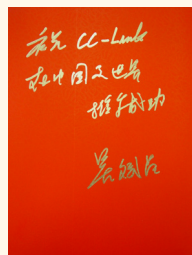 祝 CC-Link
在中国及世界
推广成功